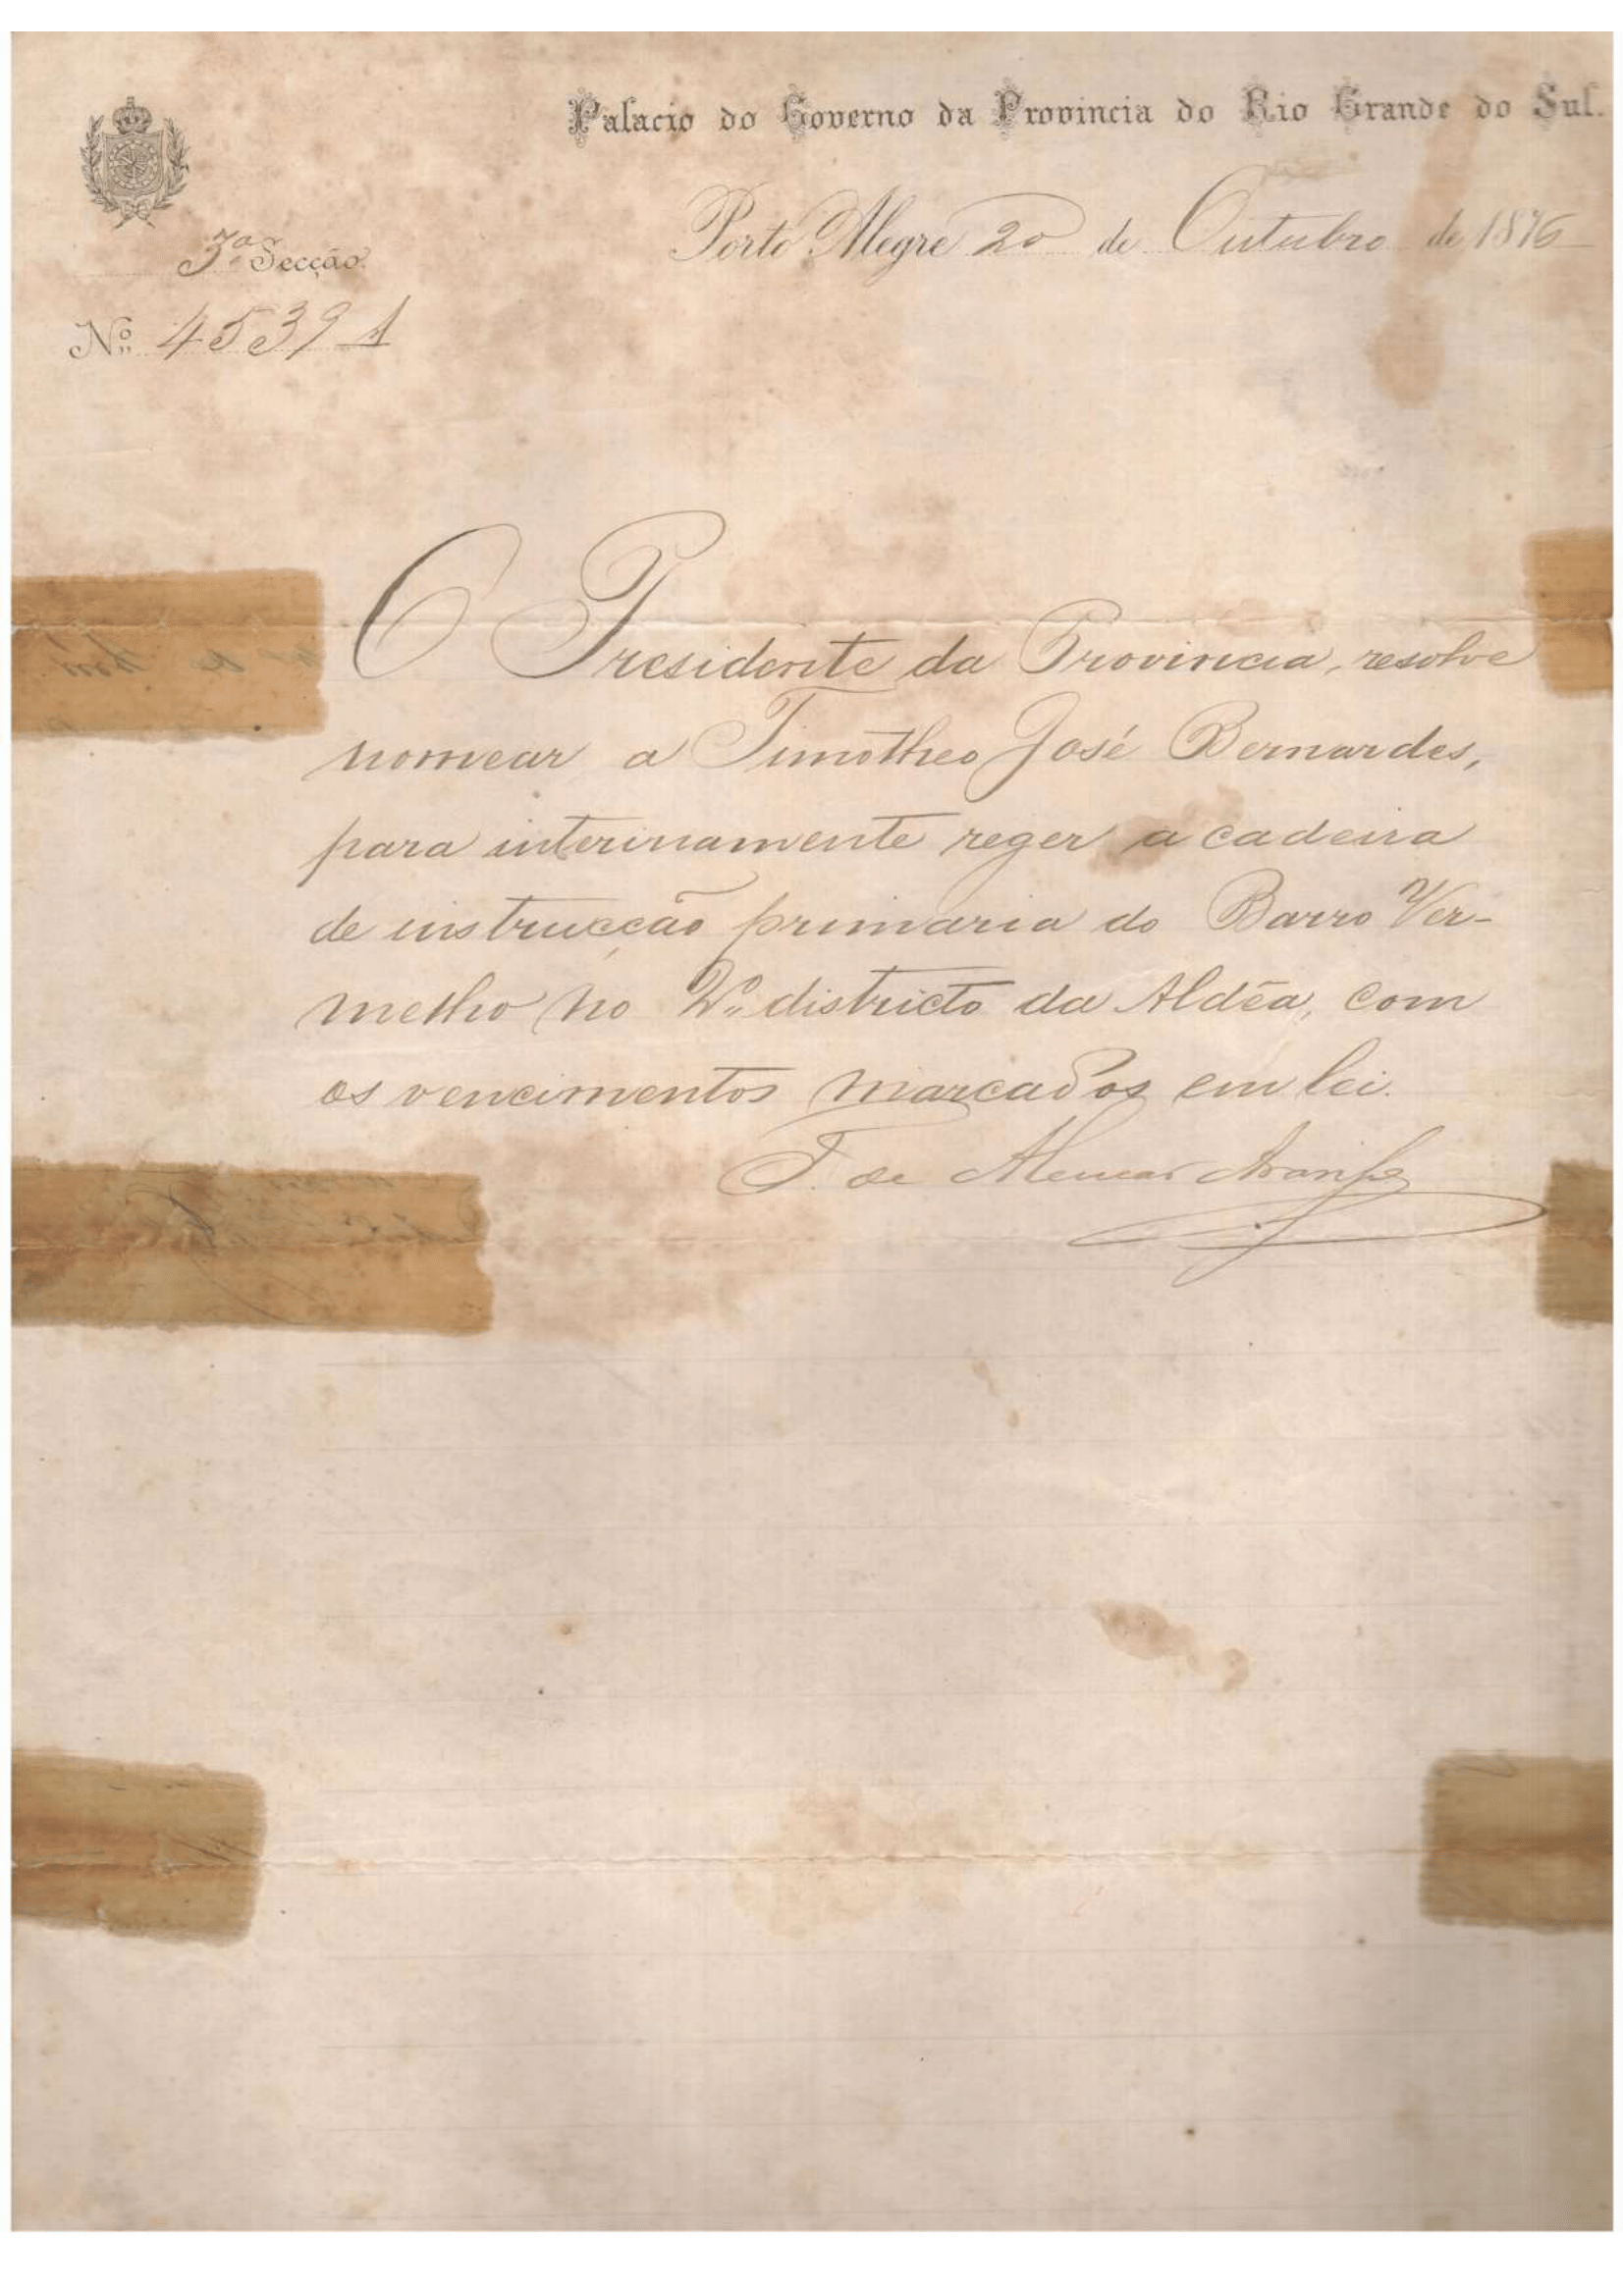 Palacio do Governo da Provincia do Rio Grande do Sul.
Porto Alegre 20 de Outubro de 1876
3ª Secção.
Nº 4539
O Presidente da Provincia, resolve
nomear a Timotheo José Bernardes,
para interinamente reger a cadeira
de instrucção primaria do Barro Ver-
melho no 2º districto da Aldêa, com
os vencimentos marcados em lei.
T. de Alencar Araripe